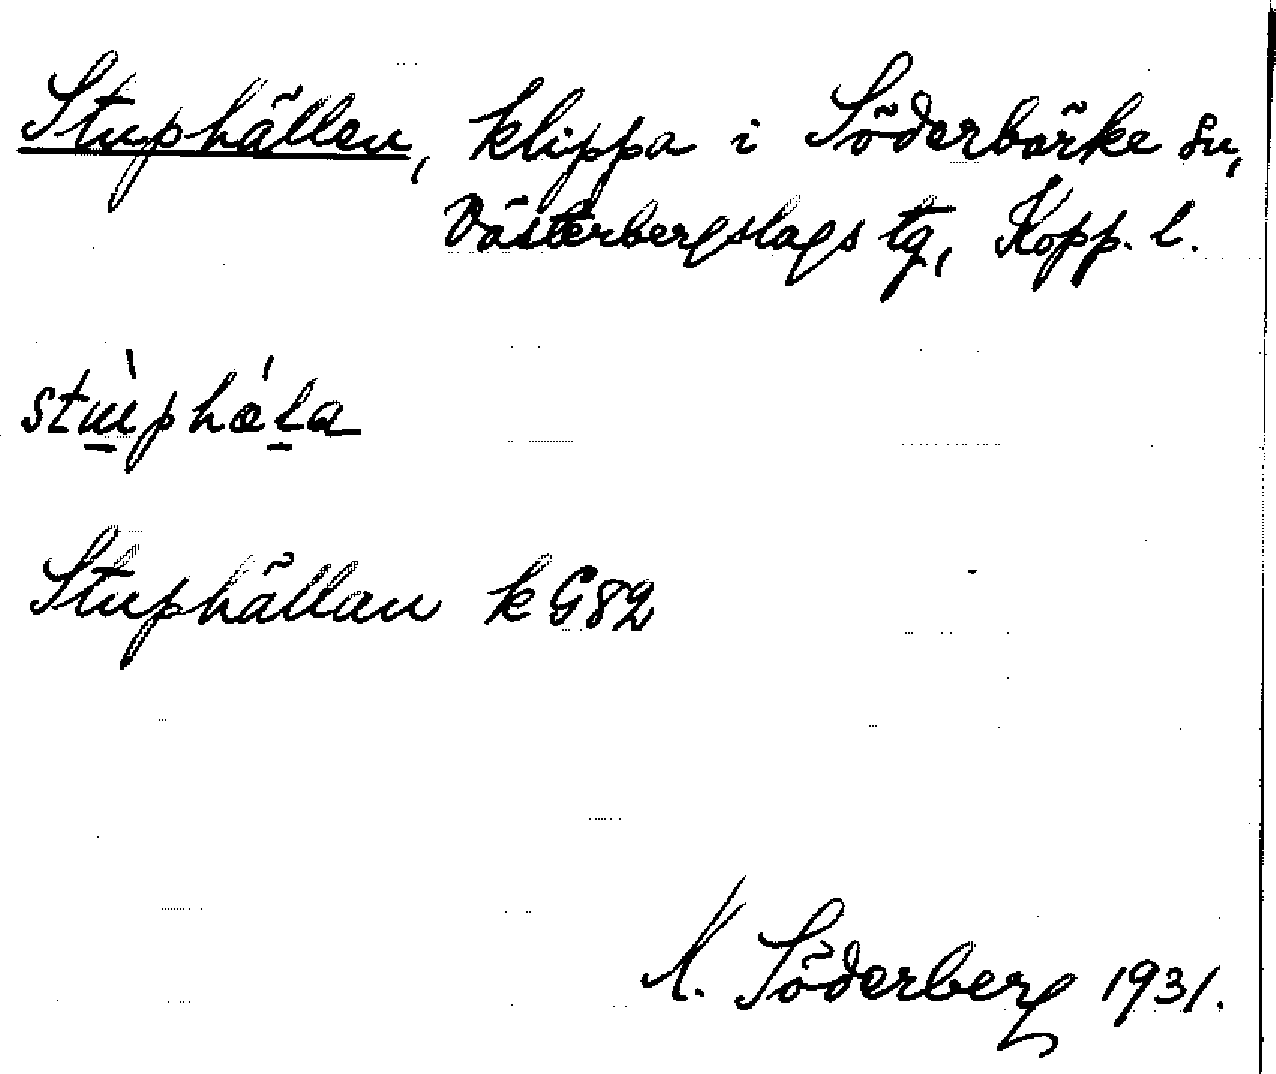 Stuphällen, klippa i Söderbärke sn,
Västerbergslags tg, Kopp. l.
Stuphällan k G82
N. Söderberg 1931.